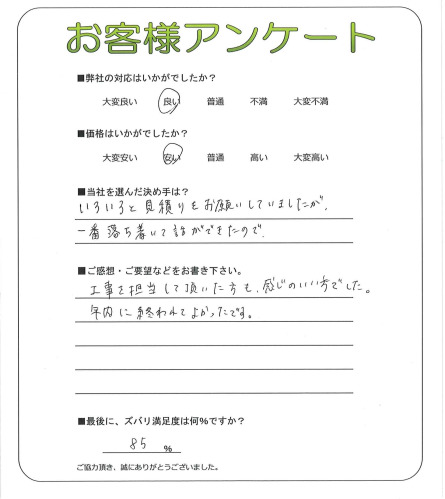 お客様アンケート
■弊社の対応はいかがでしたか?
大変良い 良い 普通 不満 大変不満
■価格はいかがでしたか?
大変安い 安い 普通 高い 大変高い
■当社を選んだ決め手は?
いろいろと見積りをお願いしていましたが、
一番落ち着いて話ができたので。
■ご感想・ご要望などをお書き下さい。
工事を担当して頂いた方も、感じのいい方でした。
年内に終われてよかったです。
■最後に、ズバリ満足度は何%ですか?
85 %
ご協力頂き、誠にありがとうございました。